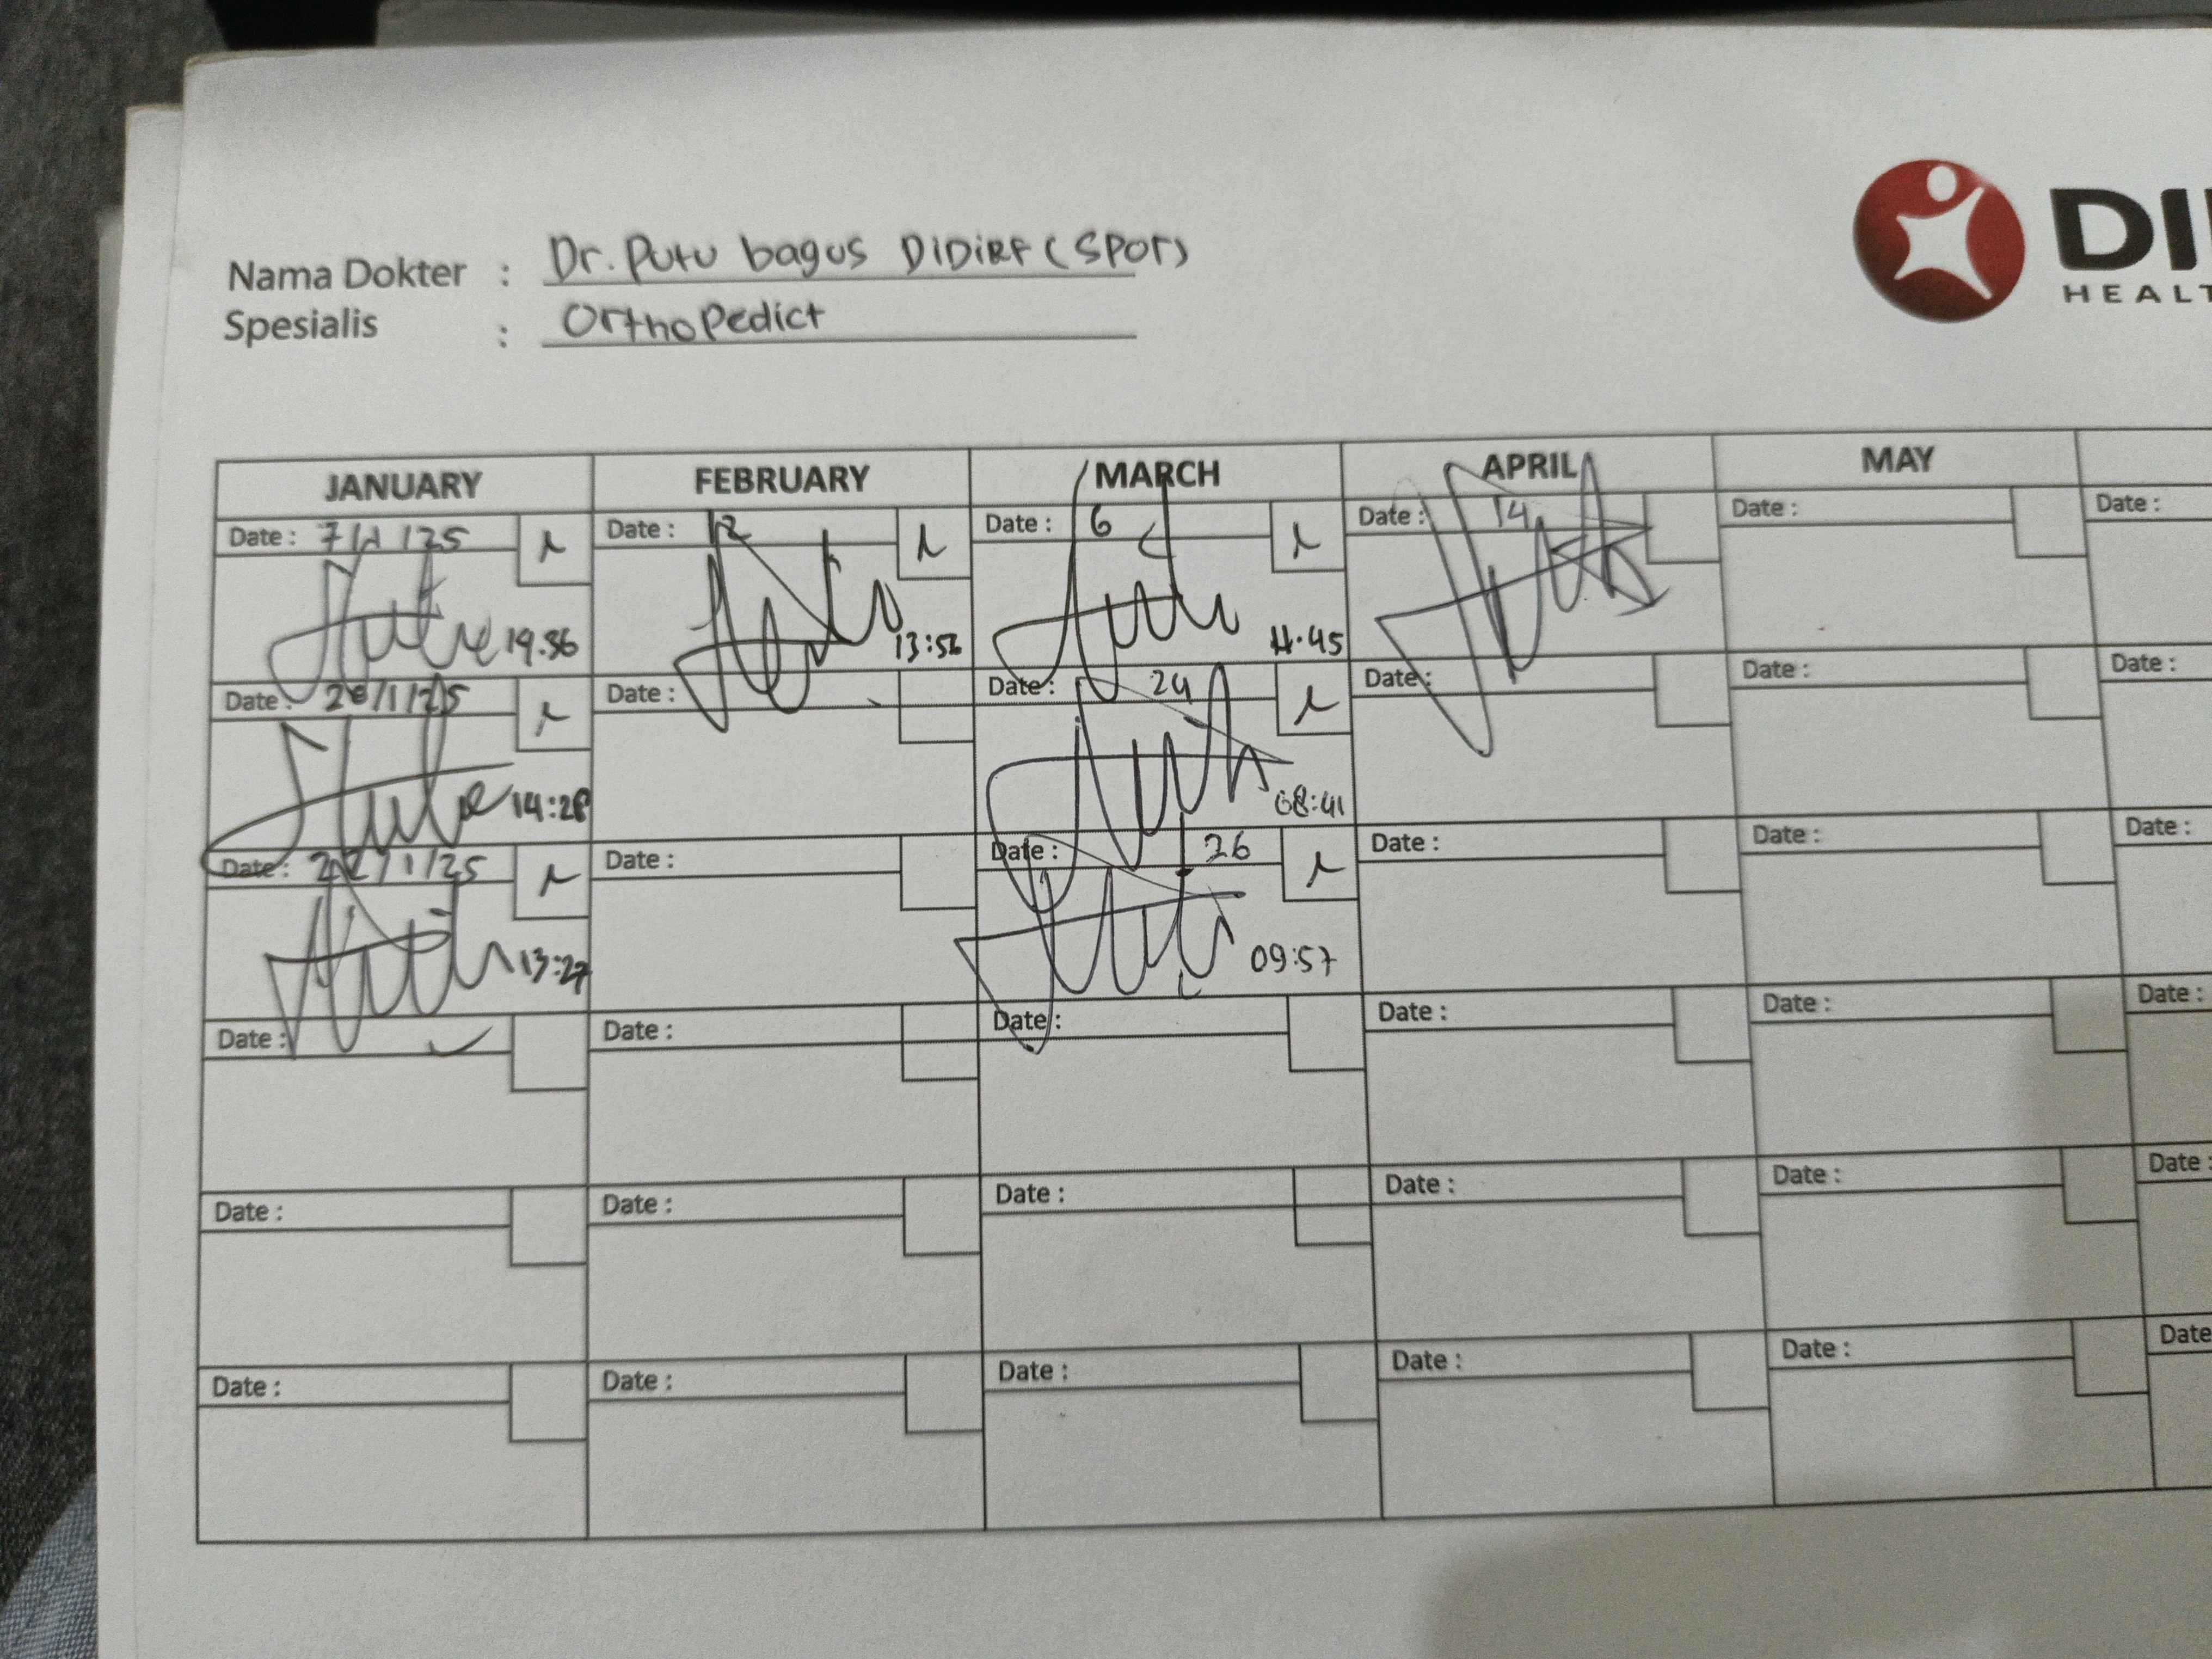 Nama Dokter : Dr. Putu bagus DIDIRF (SPOT)
Spesialis : Orthopedict
DI
HEALT
JANUARY FEBRUARY MARCH APRIL MAY
Date : 7/1/25 Date : 12 Date : 6 Date : 14 Date : Date :
19.36 13:56 11.45
Date : 20/1/25 Date : Date : 24 Date : Date : Date :
14:28 08:41
Date : 22/1/25 Date : Date : 26 Date : Date : Date :
13:27 09:57
Date : Date : Date : Date : Date : Date :
Date : Date : Date : Date : Date : Date :
Date : Date : Date : Date : Date : Date